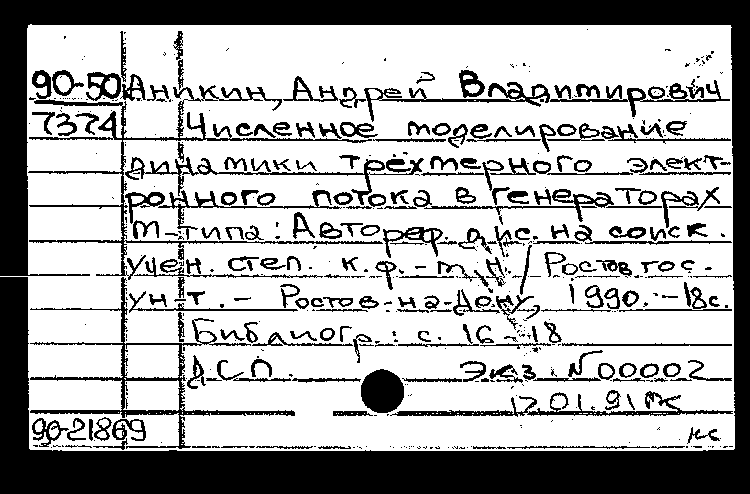 90-50 Аникин, Андрей Владимирович
7374 Численное моделирование
динамики трёхмерного элект-
ронного потока в генераторах
м-типа: Автореф. дис. на соиск.
учен. степ. к.ф.-м.н. / Ростов. гос.
ун-т. - Ростов-на-Дону, 1990. - 18с.
Библиогр.: с. 16-18
ДСП. Экз. N 00002
17.01.91
90-21869 кс